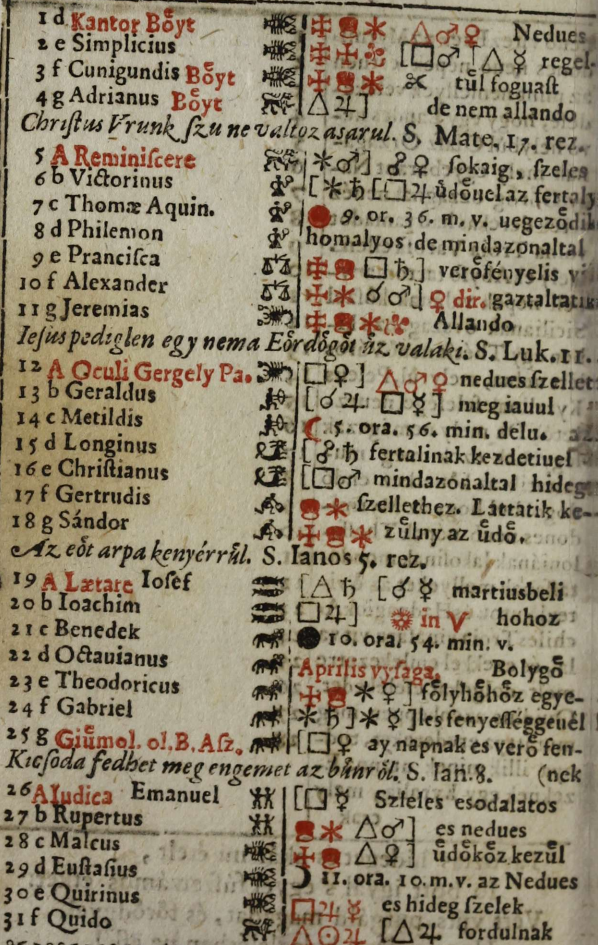 1 d Kantor Bőyt Nedues
2 e Simplicius regel-
3 f Cunigundis Bőyt tűl foguaſt
4 g Adrianus Bőyt de nem allando
Chriſtus Vrunk ſzu ne valtoz aſarul. S. Mate. 17. rez.
5 A Reminiſcere ſokaig, ſzeles
6 b Victorinus űdőuel az fertaly
7 c Thomæ Aquin. 9. or. 36. m. v. uegeződik
8 d Philemon homalyos de mindazonaltal
9 e Franciſca verőfényelis
10 f Alexander dir. gaztaltatik
11 g Jeremias Allando
Ieſus pediglen egy nema Eőrdőgőt űz valaki. S. Luk. 11.
12 A Oculi Gergely Pa. nedues ſzellet
13 b Geraldus meg iauul
14 c Metildis 5. ora. 56. min. delu.
15 d Longinus fertalinak kezdetiuel
16 e Chriſtianus mindazonaltal hideg
17 f Gertrudis ſzellethez. Lattatik ke-
18 g Sándor zűlny az űdő.
Az eőt arpa kenyérrűl. S. Ianos 5. rez.
19 A Lætare Ioſef martiusbeli
20 b Ioachim in hohoz
21 c Benedek 10. ora. 54. min. v.
22 d Octauianus Aprilis vyſaga. Bolygő
23 e Theodoricus főlyhőhőz egye-
24 f Gabriel les fenyeſſéggeuél
25 g Giűmol. ol. B. Aſz. ay napnak es verő fen-
Kicſoda fedhet meg engemet az bűnről. S. Ian. 8. (nek
26 A Iudica Emanuel Szſeles eſodalatos
27 b Rupertus
28 c Malcus es nedues
29 d Euſtaſius űdőkőz kezűl
30 e Quirinus 11. ora. 10. m. v. az Nedues
31 f Quido es hideg ſzelek
fordulnak